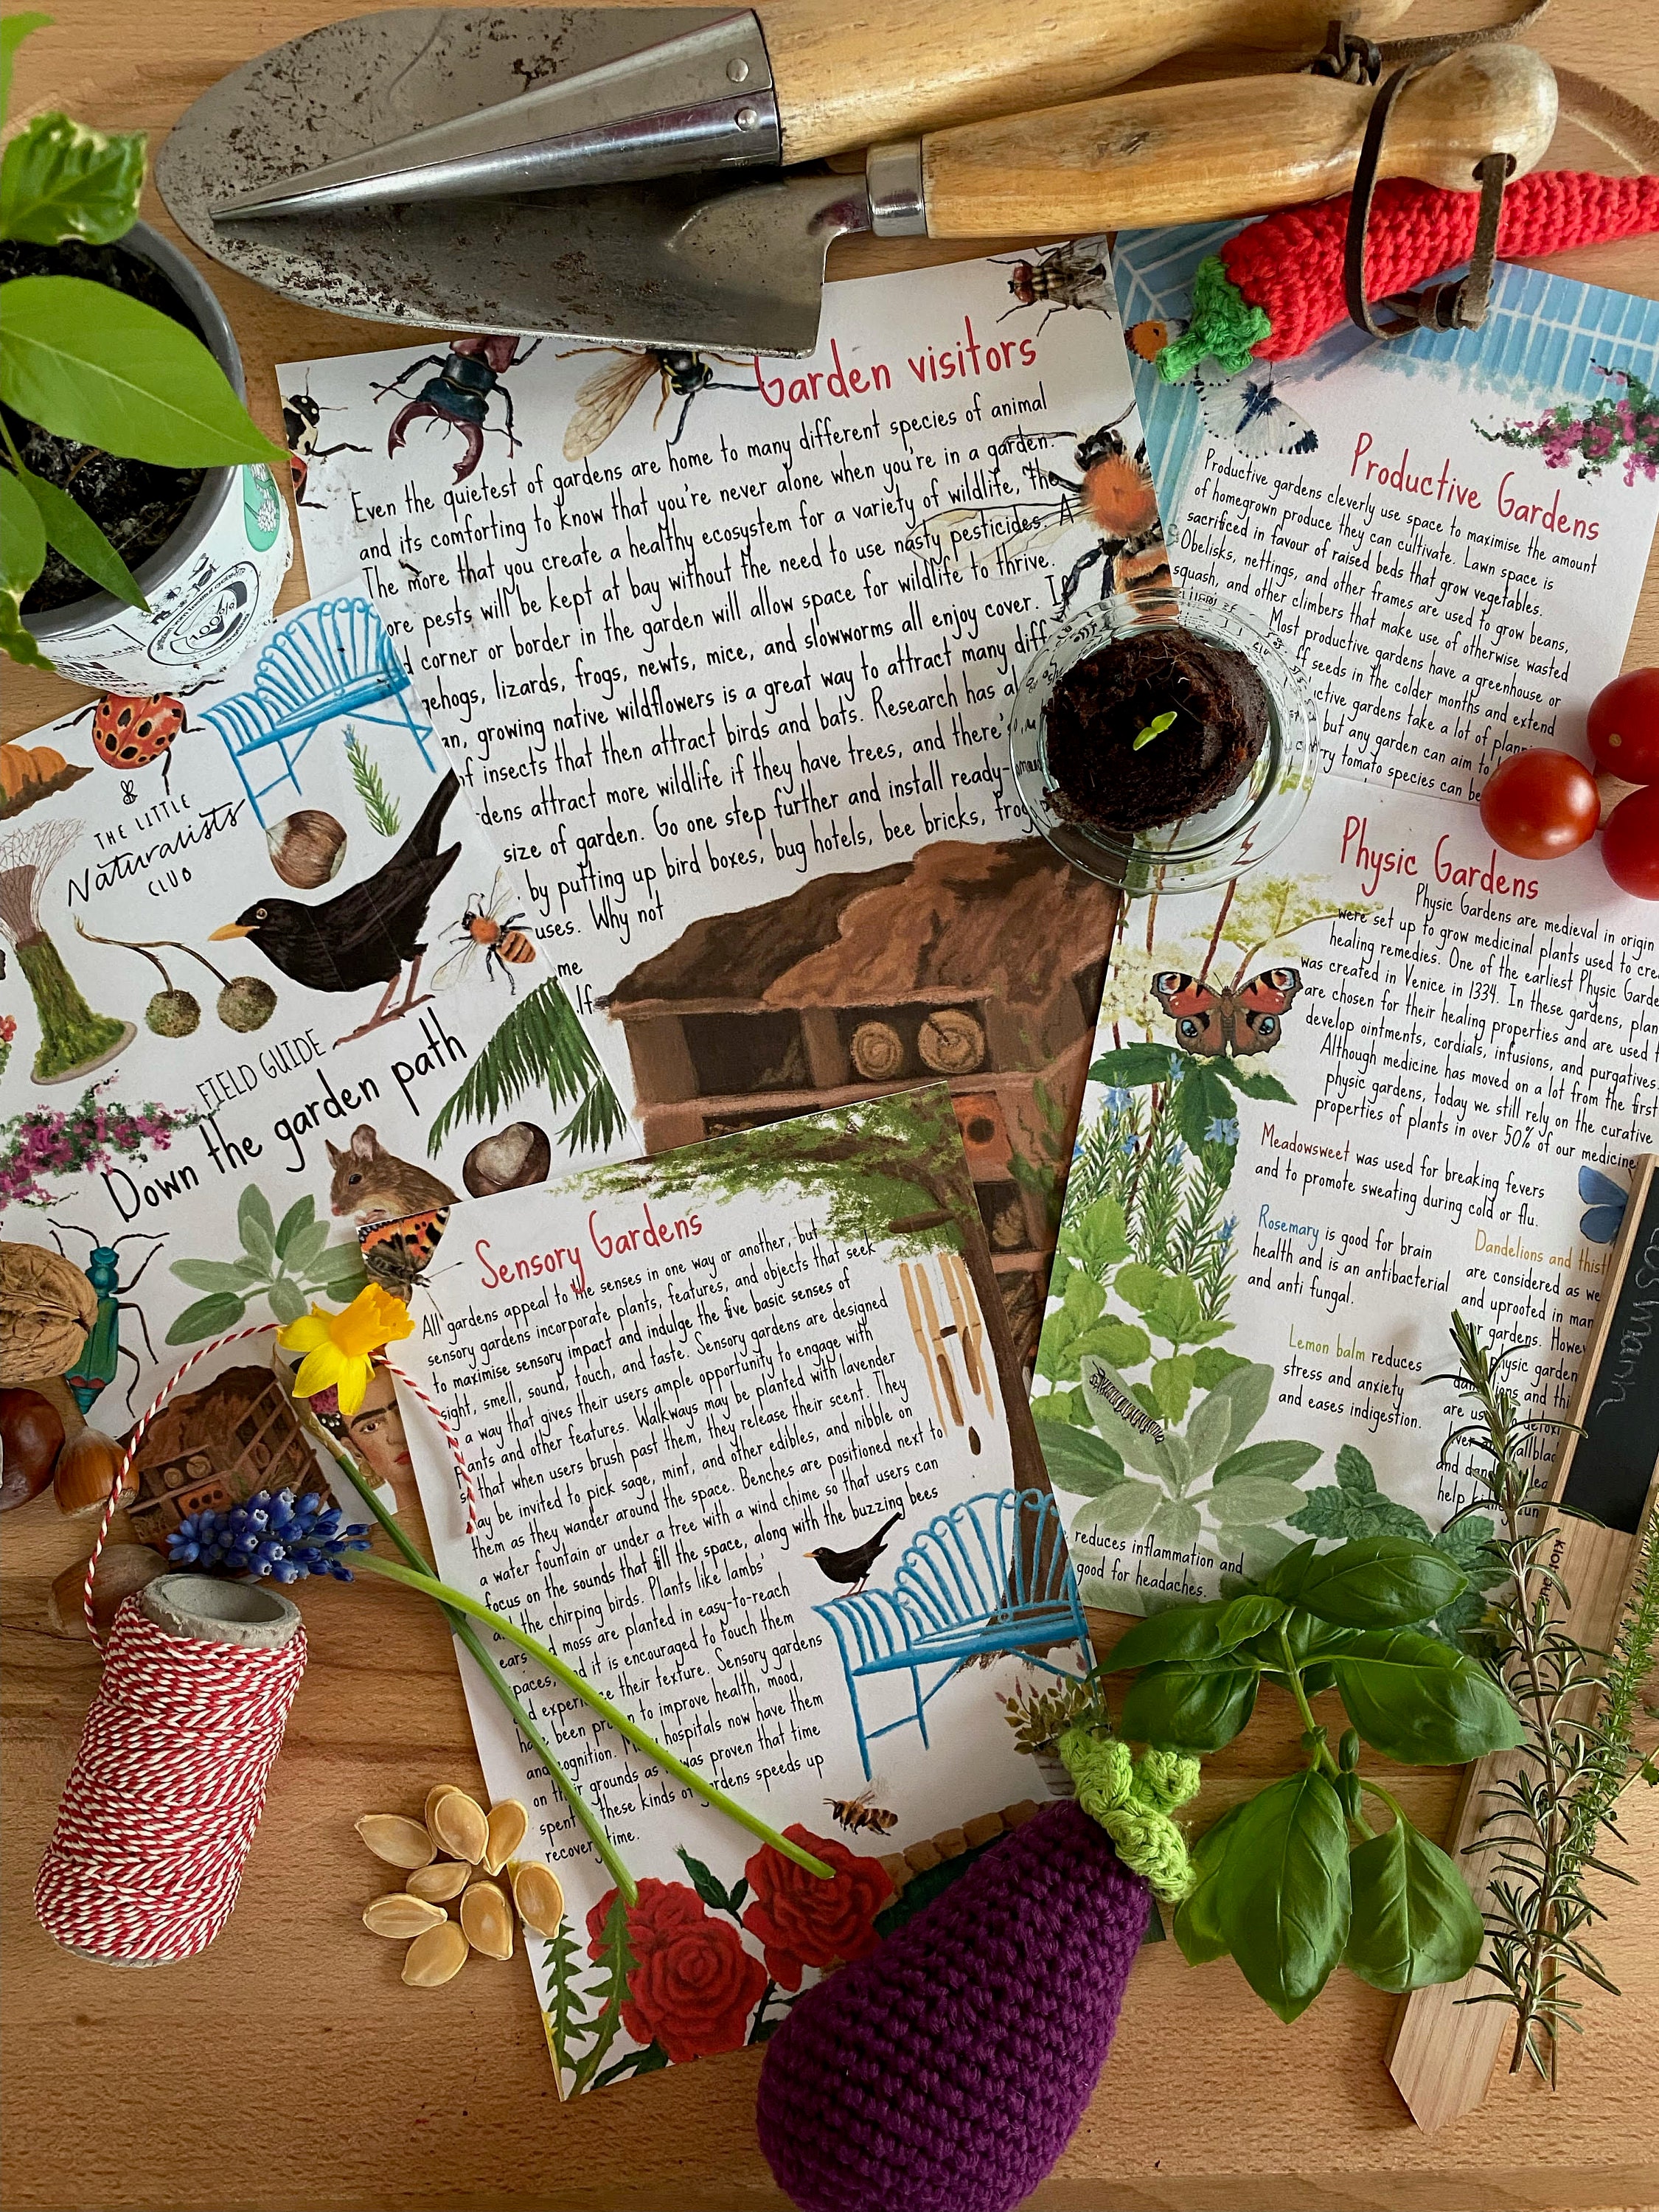 Garden visitors
Even the quietest of gardens are home to many different species of animal
and its comforting to know that you're never alone when you're in a garden.
The more that you create a healthy ecosystem for a variety of wildlife, the
ore pests will be kept at bay without the need to use nasty pesticides. A
d corner or border in the garden will allow space for wildlife to thrive.
gehogs, lizards, frogs, newts, mice, and slowworms all enjoy cover. If
an, growing native wildflowers is a great way to attract many diff
of insects that then attract birds and bats. Research has a
dens attract more wildlife if they have trees, and there's
size of garden. Go one step further and install ready-
by putting up bird boxes, bug hotels, bee bricks, frog
uses. Why not
me
If
Productive Gardens
Productive gardens cleverly use space to maximise the amount
of homegrown produce they can cultivate. Lawn space is
sacrificed in favour of raised beds that grow vegetables.
Obelisks, nettings, and other frames are used to grow beans,
squash, and other climbers that make use of otherwise wasted
Most productive gardens have a greenhouse or
ff seeds in the colder months and extend
uctive gardens take a lot of plann
but any garden can aim to
ry tomato species can be
100%
THE LITTLE
Naturalists
CLUB
FIELD GUIDE
Down the garden path
Physic Gardens
Physic Gardens are medieval in origin
were set up to grow medicinal plants used to cre
healing remedies. One of the earliest Physic Garde
was created in Venice in 1334. In these gardens, plan
are chosen for their healing properties and are used t
develop ointments, cordials, infusions, and purgatives.
Although medicine has moved on a lot from the first
physic gardens, today we still rely on the curative
properties of plants in over 50% of our medicine
Meadowsweet was used for breaking fevers
and to promote sweating during cold or flu.
Rosemary is good for brain
health and is an antibacterial
and anti fungal.
Lemon balm reduces
stress and anxiety
and eases indigestion.
Dandelions and thist
are considered as we
and uprooted in man
gardens. Howe
physic garden
and thi
are us
help
reduces inflammation and
good for headaches.
Sensory Gardens
All gardens appeal to the senses in one way or another, but
sensory gardens incorporate plants, features, and objects that seek
to maximise sensory impact and indulge the five basic senses of
sight, smell, sound, touch, and taste. Sensory gardens are designed
a way that gives their users ample opportunity to engage with
plants and other features. Walkways may be planted with lavender
so that when users brush past them, they release their scent. They
may be invited to pick sage, mint, and other edibles, and nibble on
them as they wander around the space. Benches are positioned next to
a water fountain or under a tree with a wind chime so that users can
focus on the sounds that fill the space, along with the buzzing bees
the chirping birds. Plants like lambs'
ears moss are planted in easy-to-reach
spaces, and it is encouraged to touch them
experience their texture. Sensory gardens
been proven to improve health, mood,
and cognition. Many hospitals now have them
on their grounds as it was proven that time
spent these kinds of gardens speeds up
recovery time.